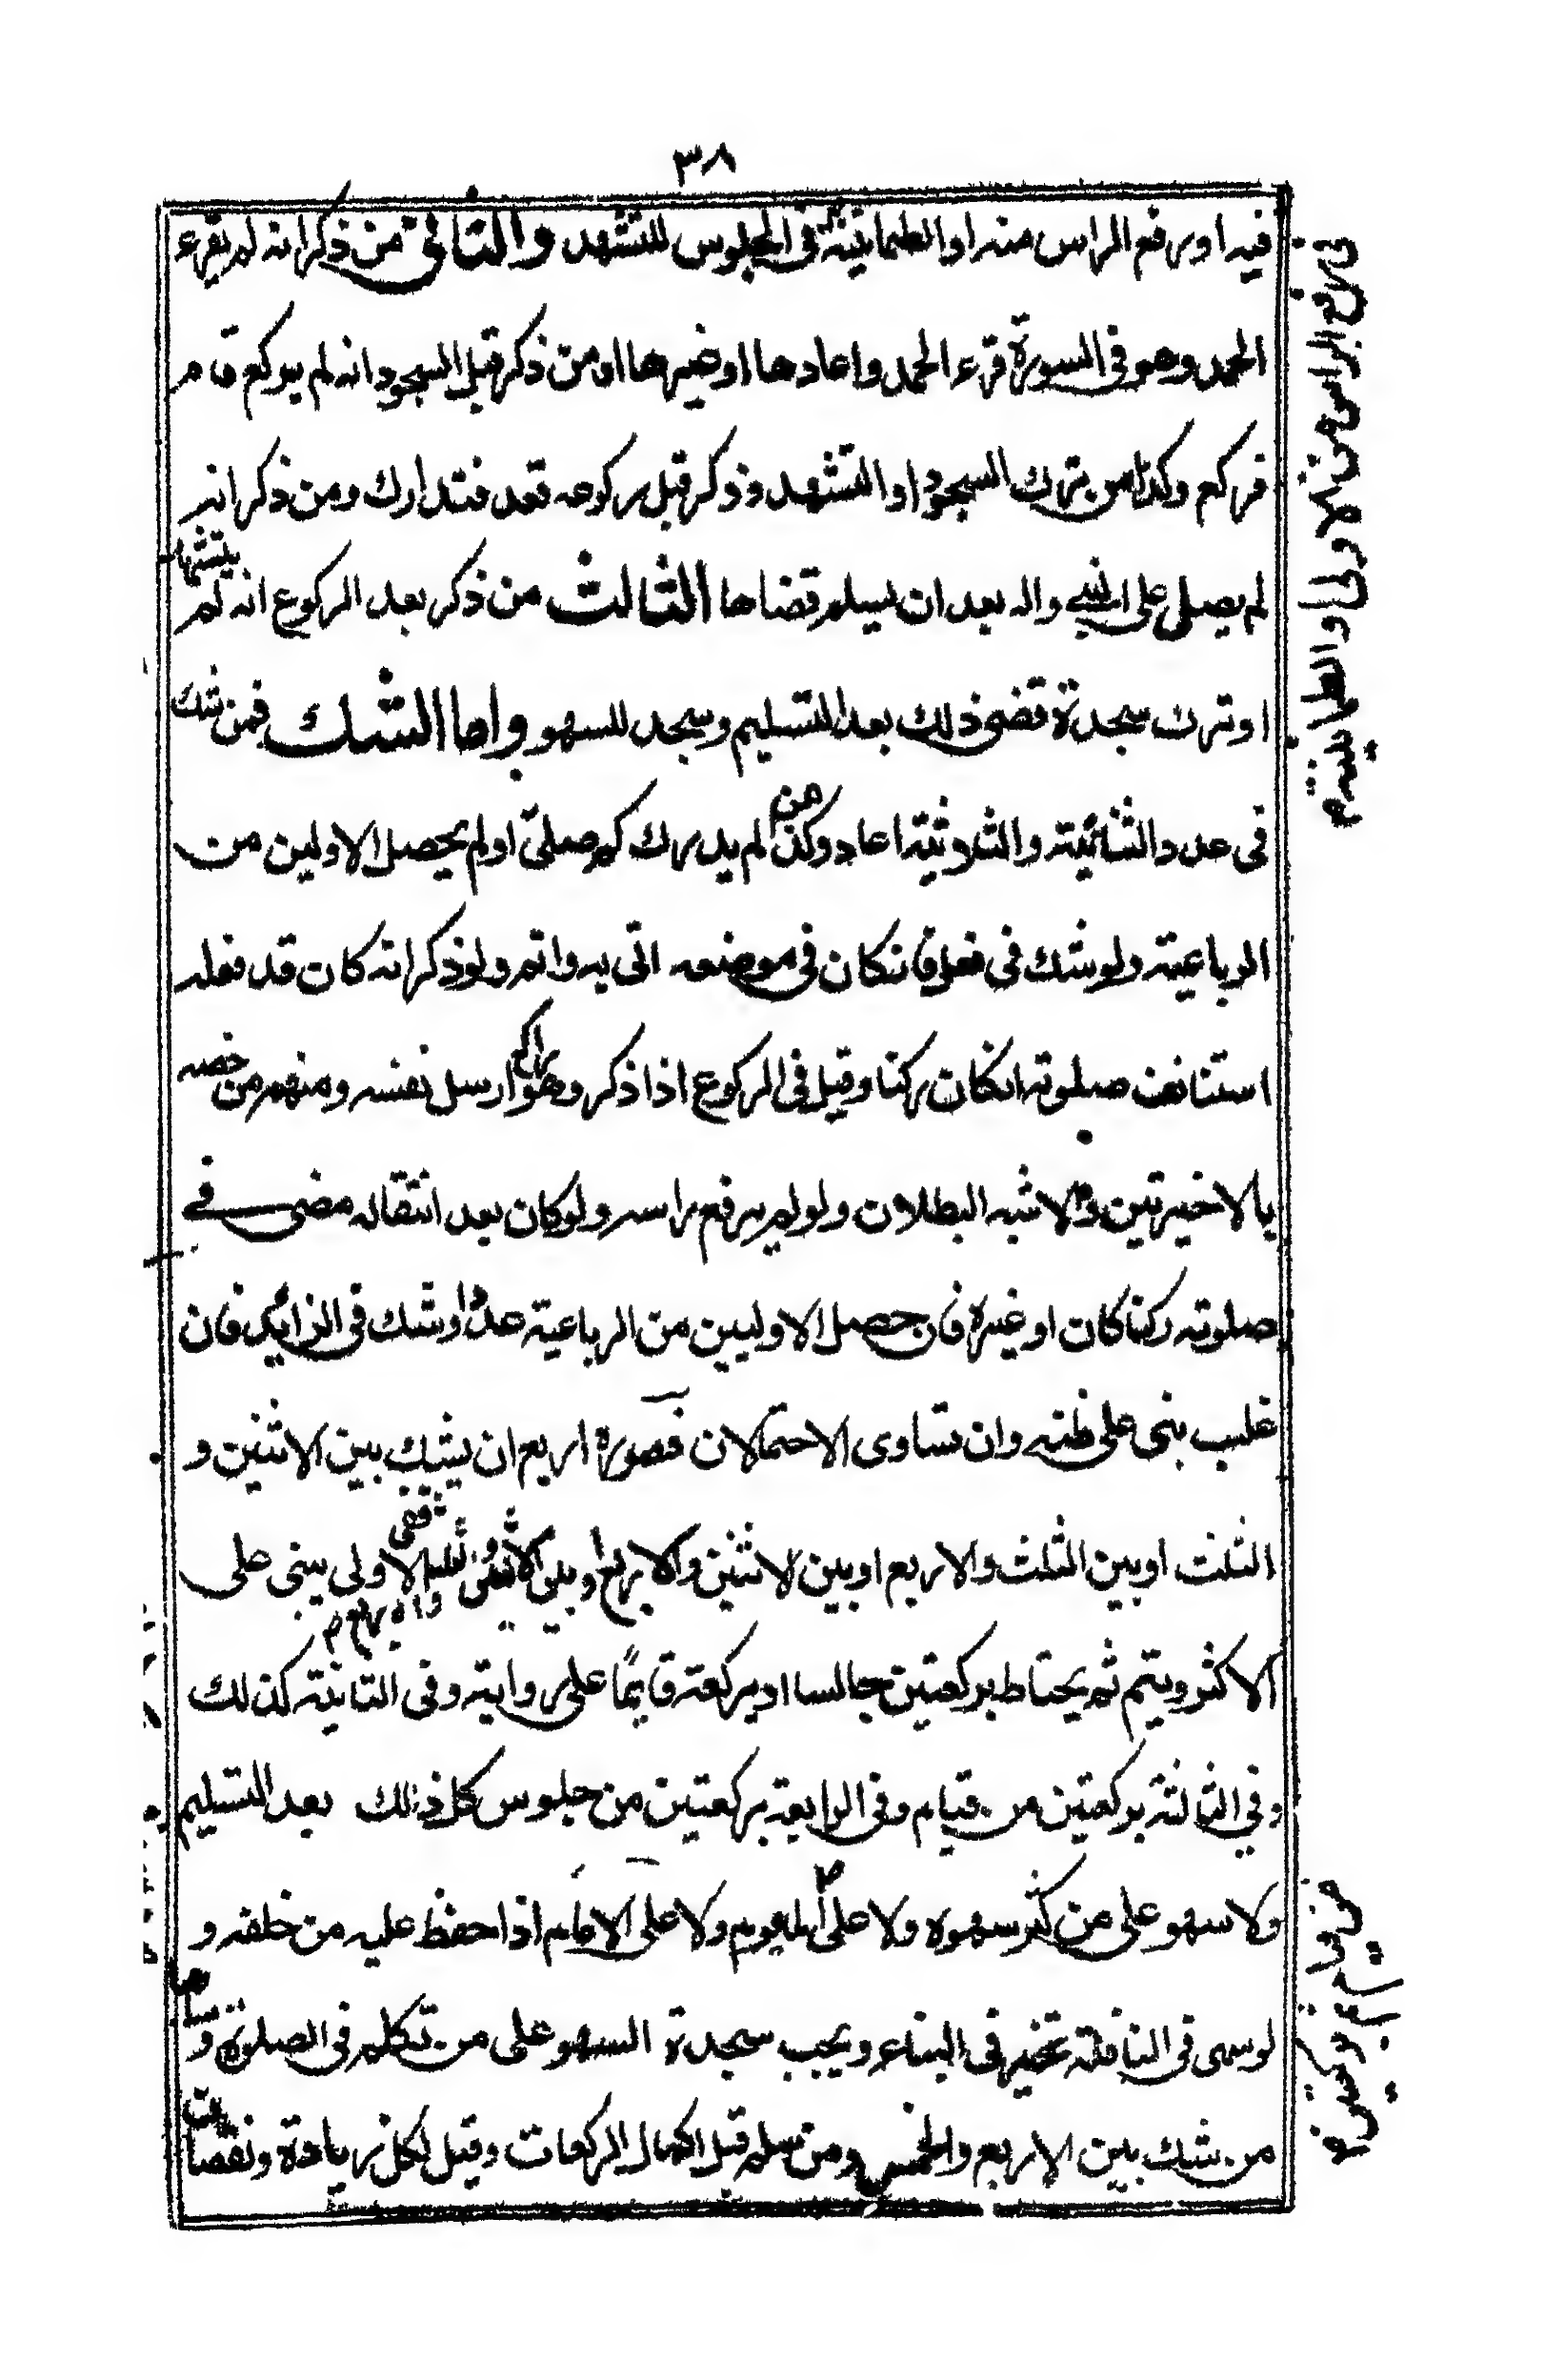 ٣٨
فيه او رفع الراس منه او الطمانينة فى الجلوس للتشهد والثانى من ذكر انه لم يقرء
الحمد وهو فى السورة قرء الحمد واعادها او غيرها او من ذكر قبل السجود انه لم يركع قام
فركع وكذا من ترك السجود او التشهد وذكر قبل ركوعه قعد فتدارك ومن ذكر انه
لم يصلى على النبى واله بعد ان يسلم قضاها الثالث من ذكر بعد الركوع انه لم يتشهد
او ترك سجدة قضى ذلك بعد التسليم وسجد للسهو واما الشك فمن شك
فى عدد الثنائية والثلاثية اعاد وكذا من لم يدرك كم صلى او لم يحصل الاولين من
الرباعية ولو شك فى فعل فانكان فى موضعه اتى به واتم ولو ذكر انه كان قد فعله
استنانف صلوته انكان ركنا وقيل فى الركوع اذا ذكر وهو راكع ارسل نفسه ومنهم من خصه
بالاخيرتين والاشبه البطلان ولو لم يرفع راسه ولو كان بعد انتقاله مضى فى
صلوته ركنا كان او غيره فان حصل الاوليين من الرباعية عددا وشك فى الزايد فان
غلب بنى على ظنه وان تساوى الاحتمالان فصوره اربع ان يشك بين الاثنين و
الثلث او بين الثلث والاربع او بين الاثنين والاربع او بين الاثنين والثلث والاربع ففى الاولى يبنى على
الاكثر ويتم ثم يحتاط بركعتين جالسا او بركعة قايما على رواية وفى الثانية كذلك
وفى الثالثة بركعتين من قيام وفى الرابعة بركعتين من جلوس كل ذلك بعد التسليم
ولا سهو على من كثر سهوه ولا على الماموم ولا على الامام اذا حفظ عليه من خلفه و
لو سهى فى النافلة تخير فى البناء ويجب سجدة السهو على من تكلم فى الصلوة ساهيا و
من شك بين الاربع والخمس ومن سلم قبل اكمال الركعات وقيل لكل زيادة ونقصان
فى رفع الراس من الاولى او الطمانينة م
من قيام